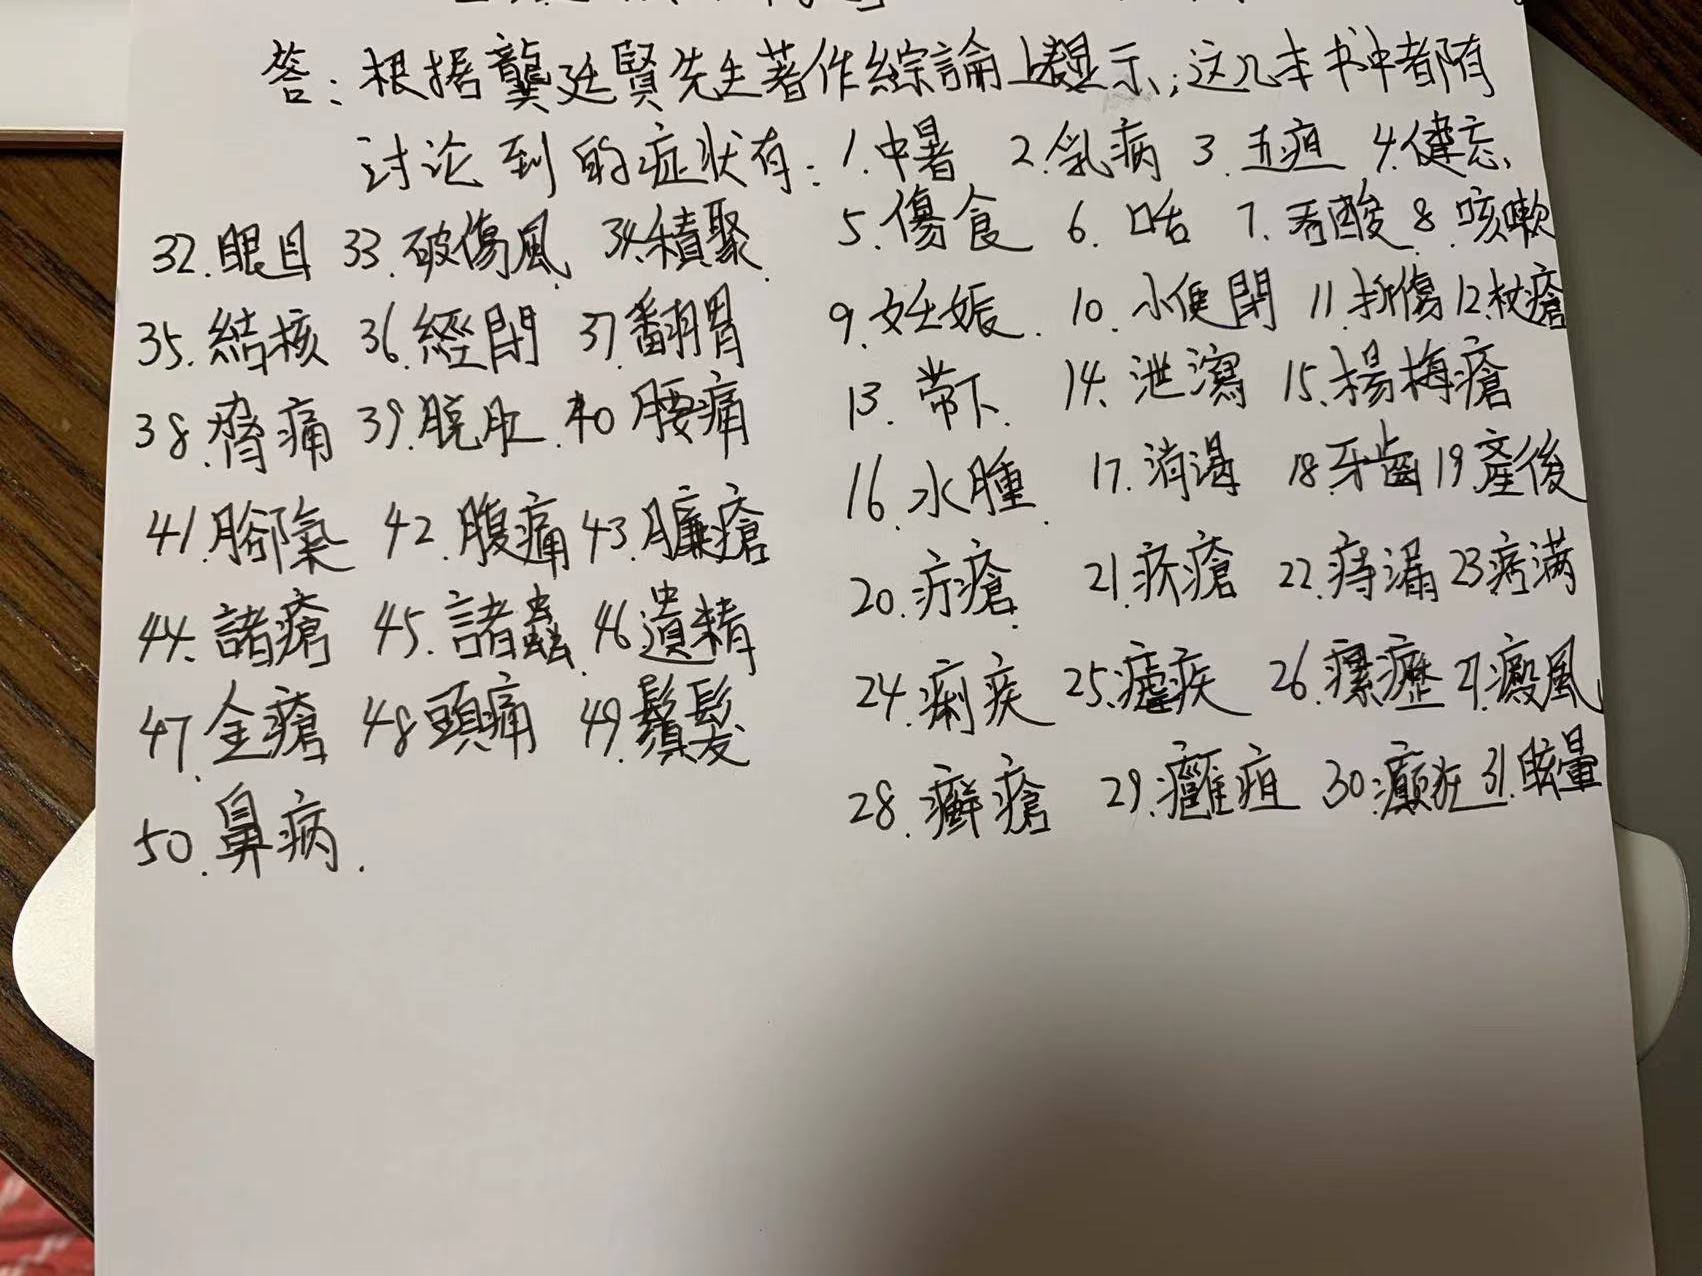 答：根据龔廷賢先生著作綜論上顯示；这几本书中都有
讨论到的症状有：1.中暑 2.乳病 3.五疸 4.健忘、
5.傷食 6.口舌 7.吞酸 8.咳嗽
9.妊娠. 10.小便閉 11.折傷 12.杖瘡
13.帶下. 14.泄瀉 15.楊梅瘡
16.水腫. 17.消渴 18.牙齒 19.產後
20.疔瘡. 21.疥瘡 22.痔漏 23.痞满
24.痢疾 25.瘧疾 26.瘰癧 27.癜風、
28.癬瘡 29.癰疽 30.癲狂 31.眩暈
32.眼目 33.破傷風. 34.積聚.
35.結核 36.經閉 37.翻胃
38.脅痛 39.脫肛. 40腰痛
41.腳氣 42.腹痛 43.臁瘡
44.諸瘡 45.諸蟲. 46.遺精
47.金瘡 48.頭痛 49.鬚髮
50.鼻病.